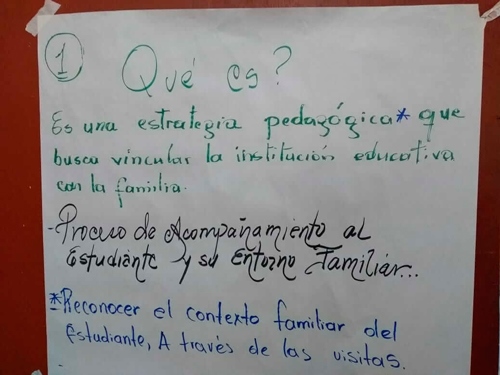 1 Qué es?
Es una estrategia pedagógica* que
busca vincular la institución educativa
con la familia.
-Proceso de Acompañamiento al
Estudiante y su Entorno Familiar...
*Reconocer el contexto familiar del
Estudiante, A través de las visitas.